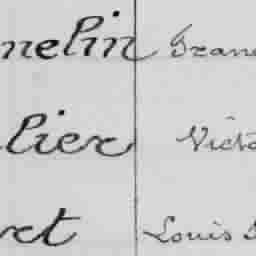 nelin Fran
lier Victo
ret Louis